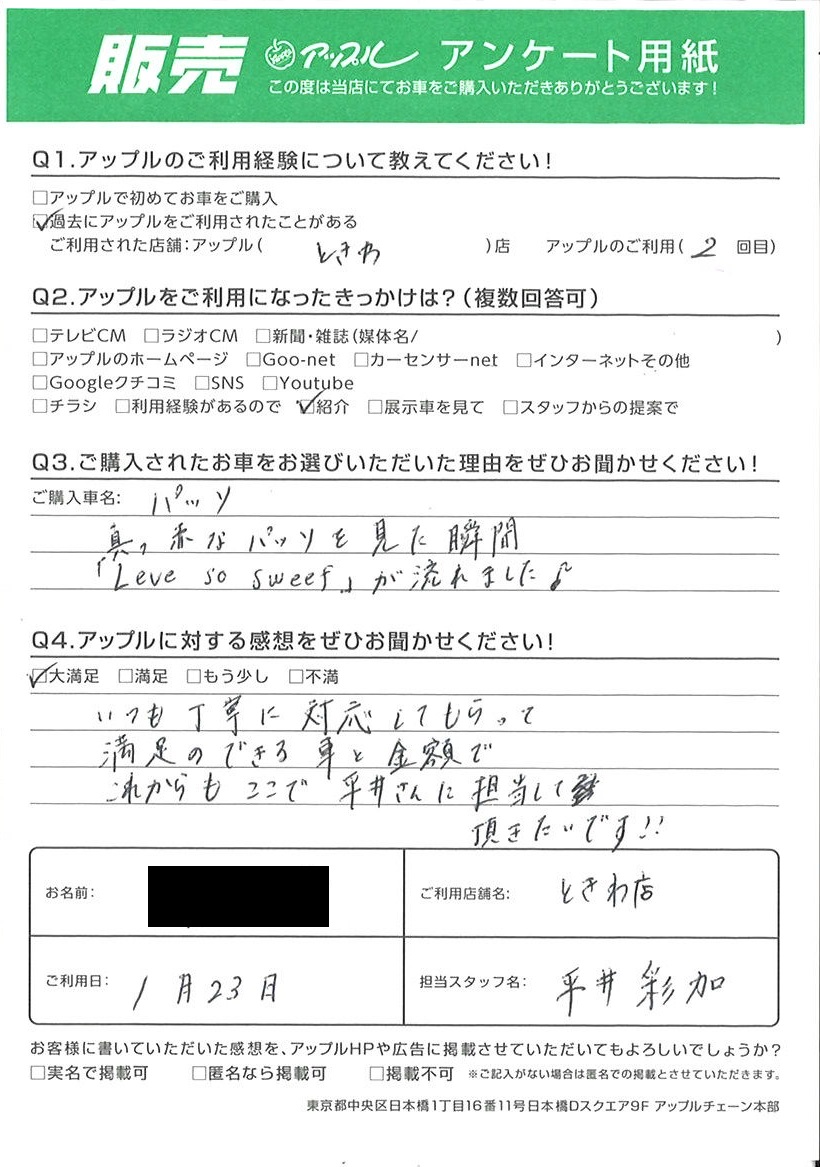 販売 アップル アンケート用紙
この度は当店にてお車をご購入いただきありがとうございます!
Q1.アップルのご利用経験について教えてください!
□アップルで初めてお車をご購入
☑過去にアップルをご利用されたことがある
ご利用された店舗:アップル( ときわ )店 アップルのご利用( 2 回目)
Q2.アップルをご利用になったきっかけは?(複数回答可)
□テレビCM □ラジオCM □新聞・雑誌(媒体名/ )
□アップルのホームページ □Goo-net □カーセンサーnet □インターネットその他
□Googleクチコミ □SNS □Youtube
□チラシ □利用経験があるので ☑紹介 □展示車を見て □スタッフからの提案で
Q3.ご購入されたお車をお選びいただいた理由をぜひお聞かせください!
ご購入車名: パッソ
真っ赤なパッソを見た瞬間
「Leve so sweet」が流れました♪
Q4.アップルに対する感想をぜひお聞かせください!
☑大満足 □満足 □もう少し □不満
いつも丁寧に対応してもらって
満足のできる車と金額で
これからもここで平井さんに担当して
頂きたいです!!
お名前:
ご利用店舗名: ときわ店
ご利用日: 1月23日
担当スタッフ名: 平井彩加
お客様に書いていただいた感想を、アップルHPや広告に掲載させていただいてもよろしいでしょうか?
□実名で掲載可 □匿名なら掲載可 □掲載不可 ※ご記入がない場合は匿名での掲載とさせていただきます。
東京都中央区日本橋1丁目16番11号日本橋Dスクエア9F アップルチェーン本部